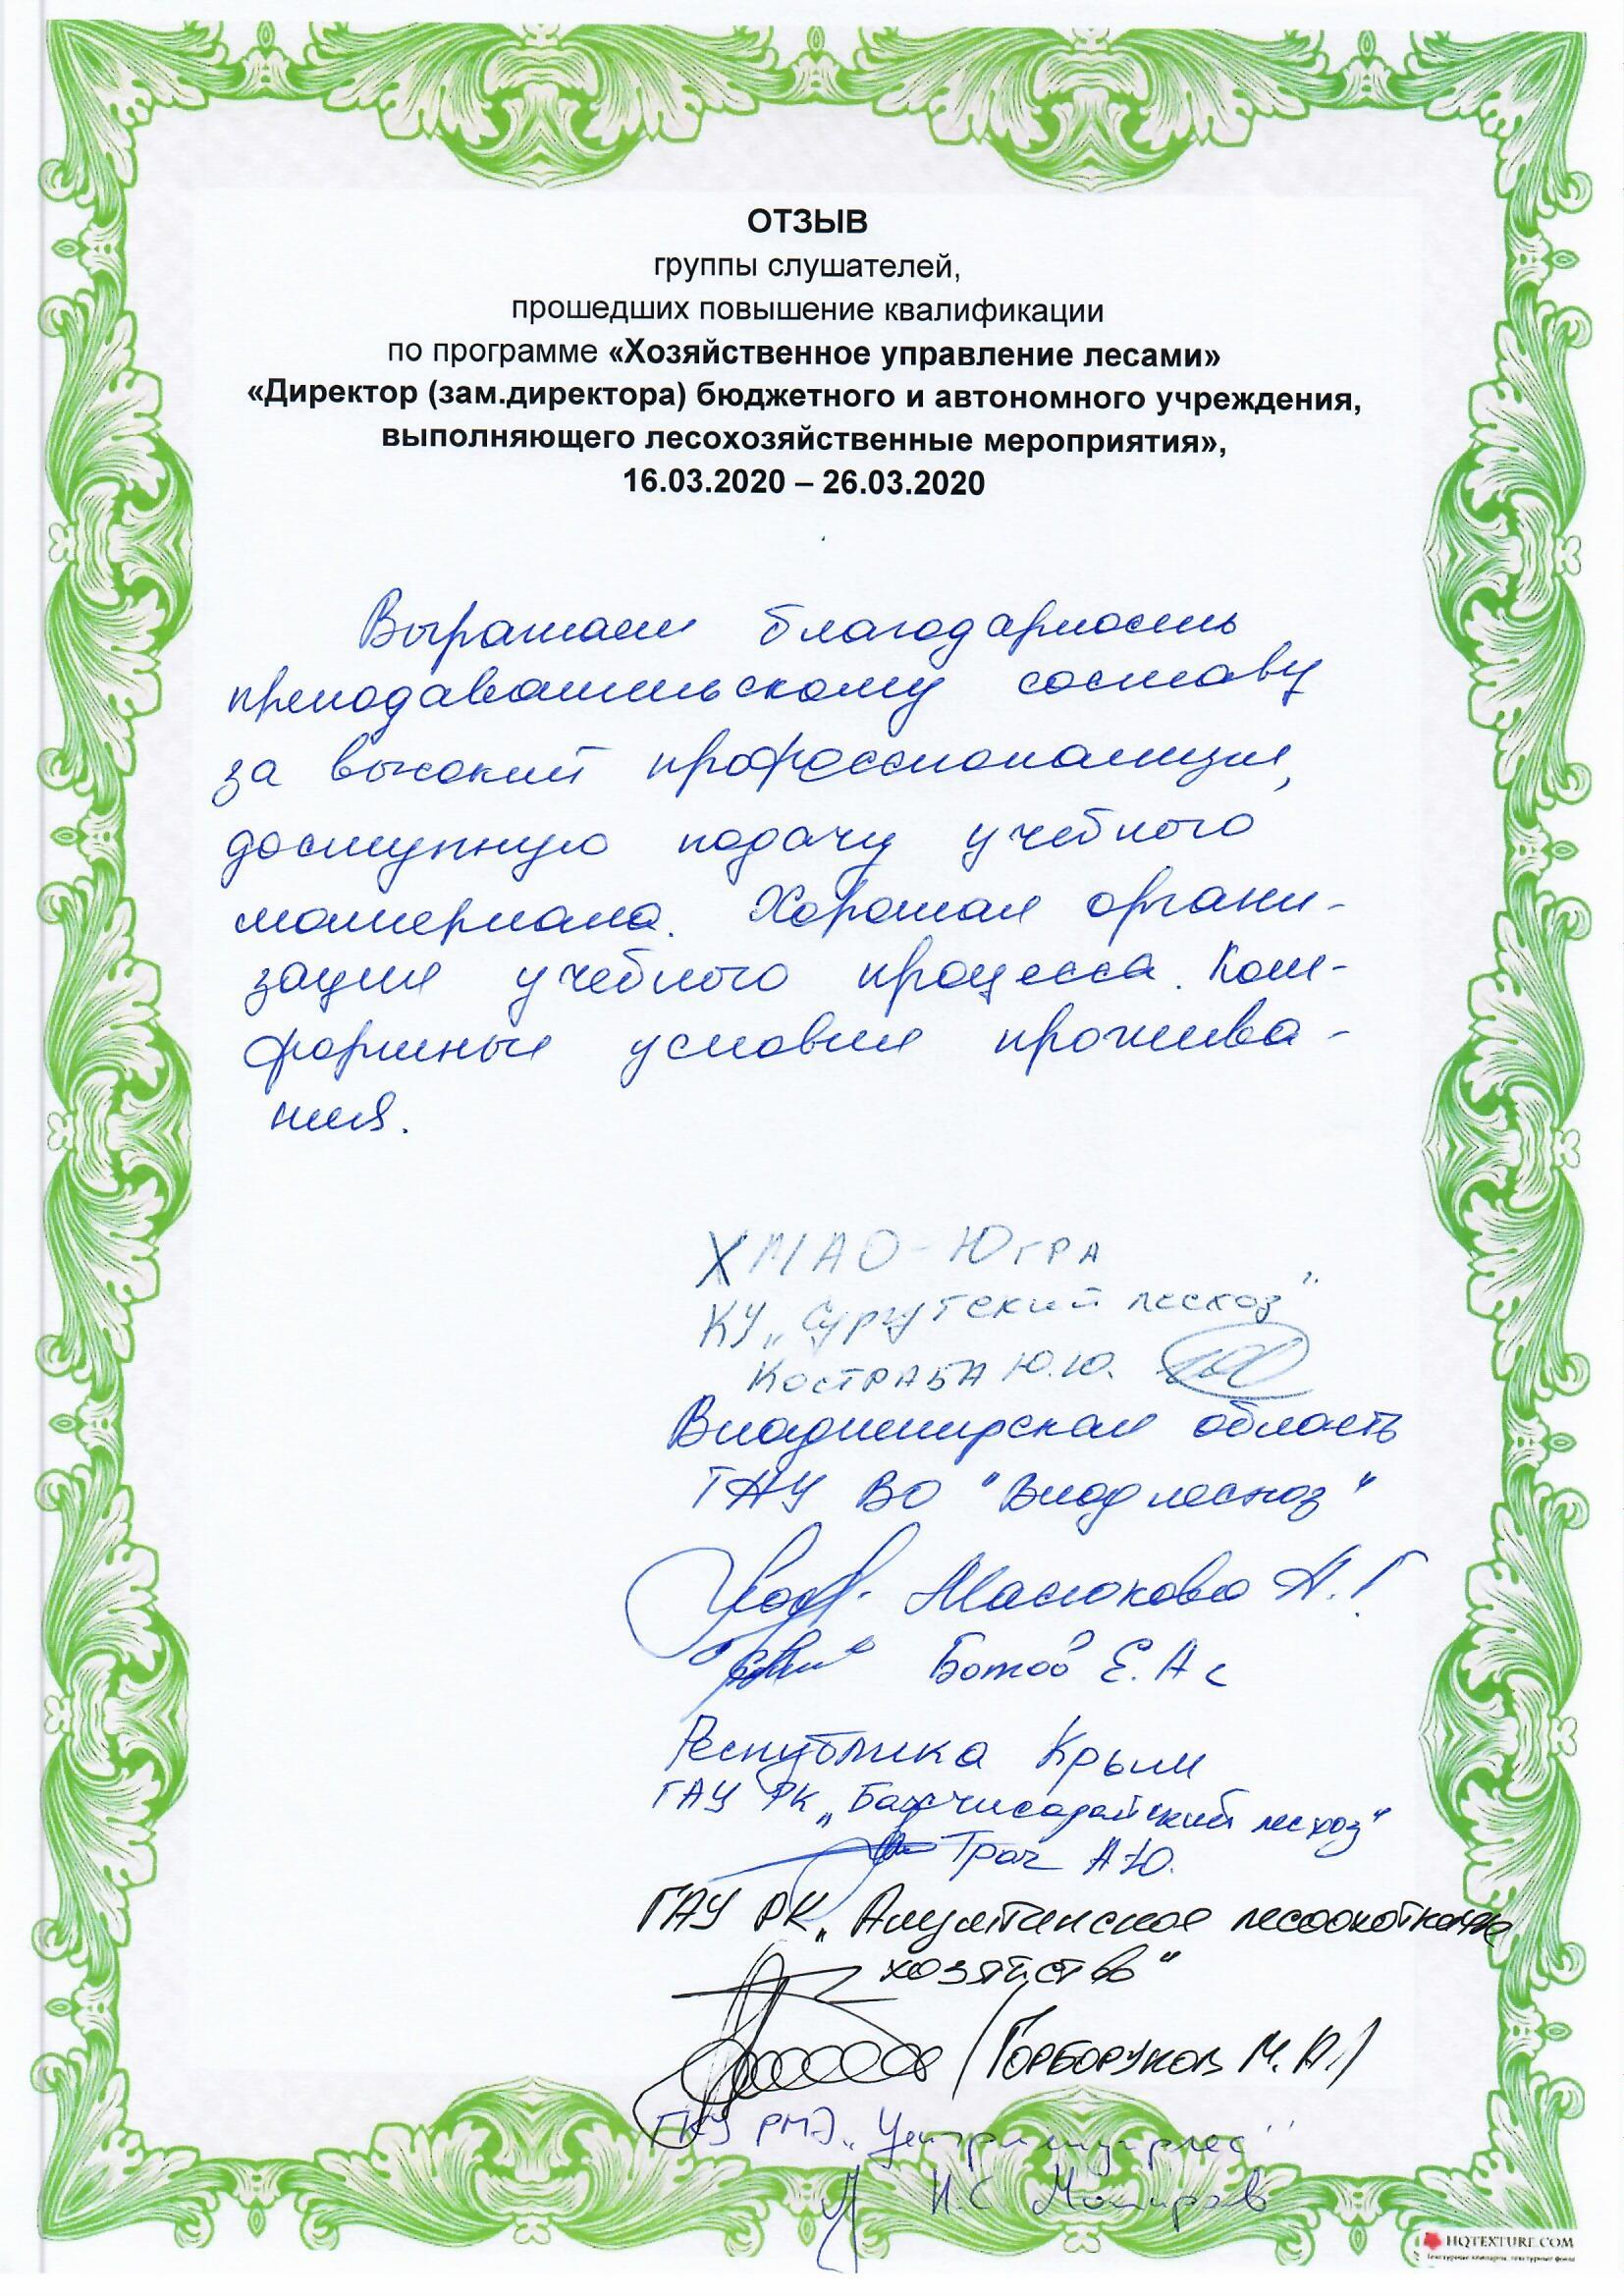 ОТЗЫВ
группы слушателей,
прошедших повышение квалификации
по программе «Хозяйственное управление лесами»
«Директор (зам.директора) бюджетного и автономного учреждения,
выполняющего лесохозяйственные мероприятия»,
16.03.2020 – 26.03.2020
Выражаем благодарность
преподавательскому составу
за высокий профессионализм,
доступную подачу учебного
материала. Хорошая органи-
зация учебного процесса. Ком-
фортные условия прожива-
ния.
ХМАО-Югра
КУ „Сургутский лесхоз"
Костраба Ю.Ю.
Владимирская область
ГАУ ВО "Владлесхоз"
Масюкова Н.Г
Ботов Е.А
Республика Крым
ГАУ РК „Бахчисарайский лесхоз"
Трач А.Ю.
ГАУ РК „Алуштинское лесоохотничье
хозяйство"
/Горборуков М.А./
ГКУ РМЭ
И.С
HQTEXTURE.COM